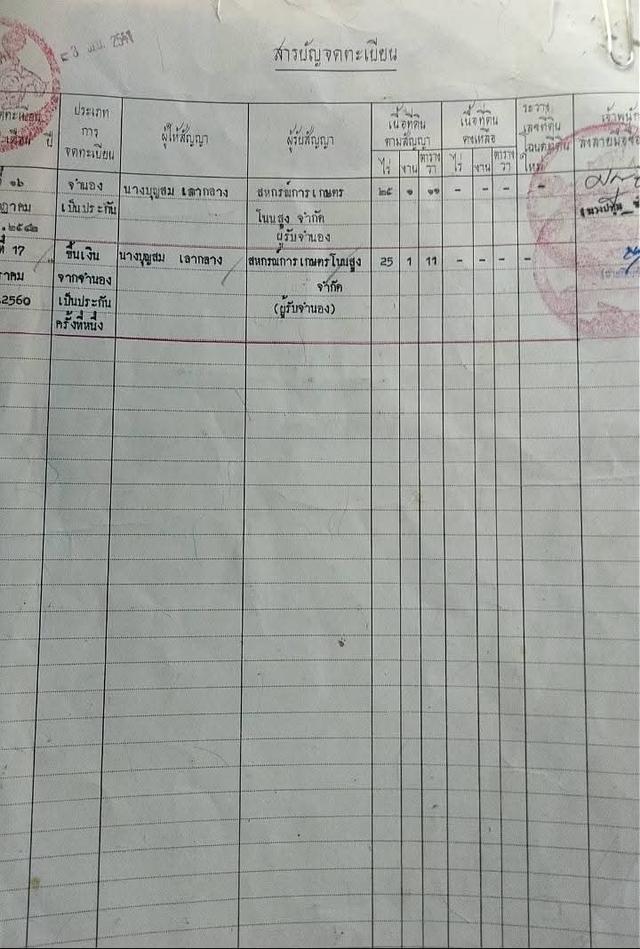 สารบัญจดทะเบียน
ประเภท
การ
จดทะเบียน
ผู้ให้สัญญา
ผู้รับสัญญา
เนื้อที่ดิน
ตามสัญญา
ไร่ งาน ตาราง
วา
เนื้อที่ดิน
คงเหลือ
ไร่ งาน ตาราง
วา
ระวาง
เลขที่ดิน
โฉนดที่ดิน
ใหม่
ปี
๑๖ จำนอง นางบุญสม เลากลาง สหกรณ์การเกษตร ๒๕ ๑ ๑๑ - - - -
เป็นประกัน โนนสูง จำกัด
ผู้รับจำนอง
ที่ 17 ขึ้นเงิน นางบุญสม เลากลาง สหกรณ์การเกษตรโนนสูง 25 1 11 - - - -
จากจำนอง จำกัด
2560 เป็นประกัน (ผู้รับจำนอง)
ครั้งที่หนึ่ง